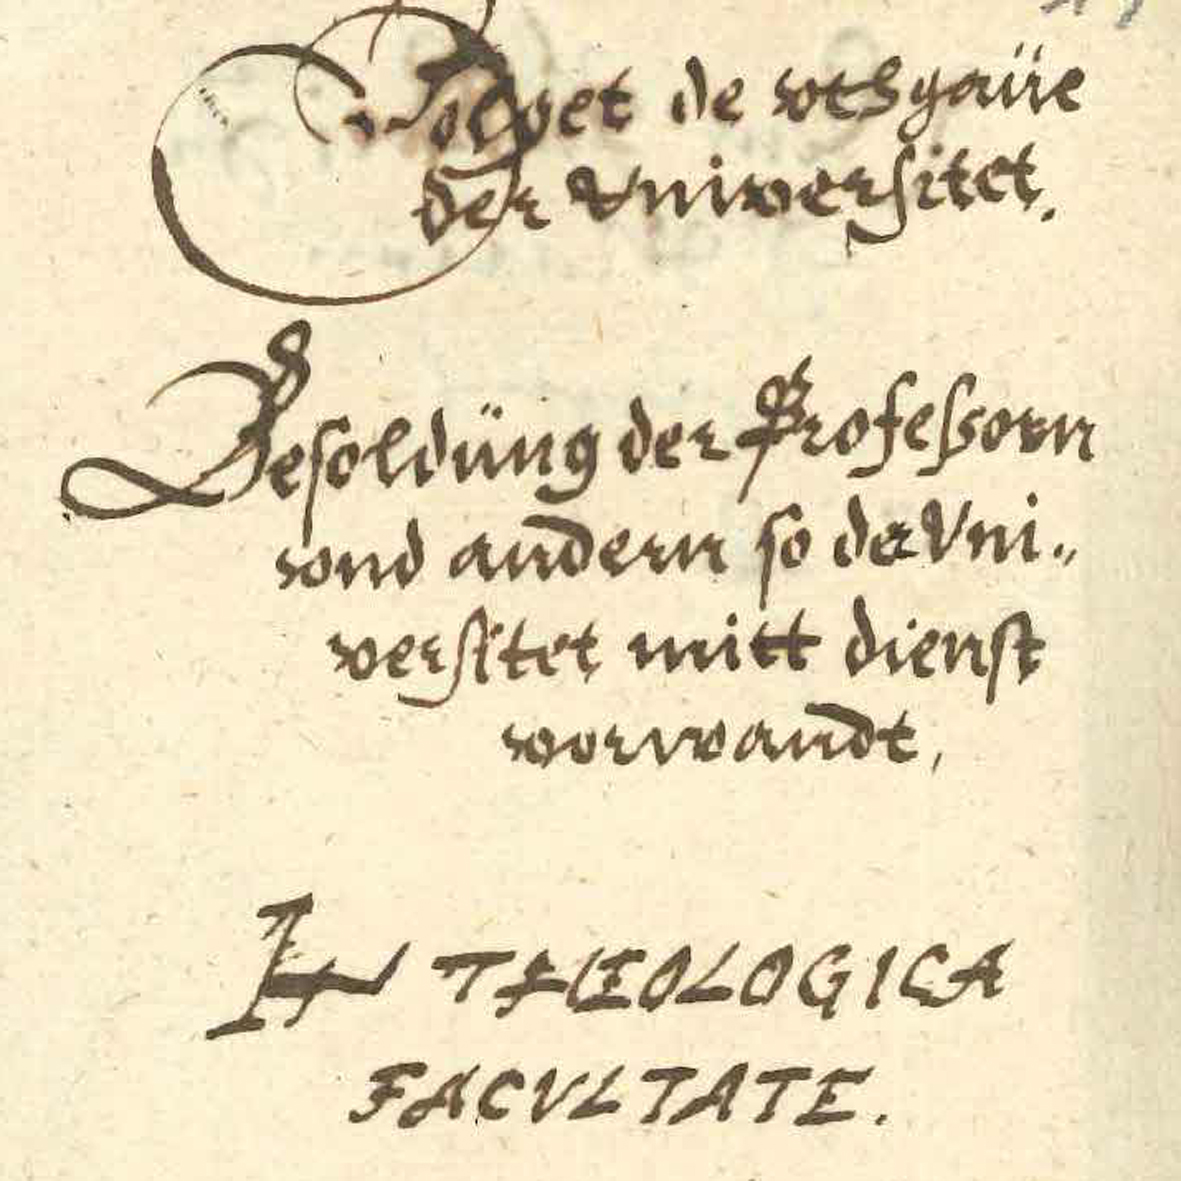 Volget de wthgaüe
der Vniversitet.
Besoldüng der Professorn
vnd andern so der Vni„
versitet mitt dienst
vorwandt,
IN THEOLOGICA
FACVLTATE.